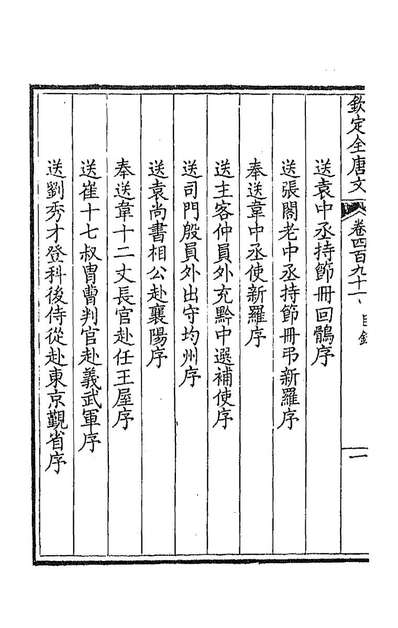 欽定全唐文
卷四百九十一
目錄
一
送袁中丞持節冊回鶻序
送張閣老中丞持節冊弔新羅序
奉送韋中丞使新羅序
送主客仲員外充黔中選補使序
送司門殷員外出守均州序
送袁尚書相公赴襄陽序
奉送韋十二丈長官赴任王屋序
送崔十七叔胄曹判官赴義武軍序
送劉秀才登科後侍從赴東京觀省序